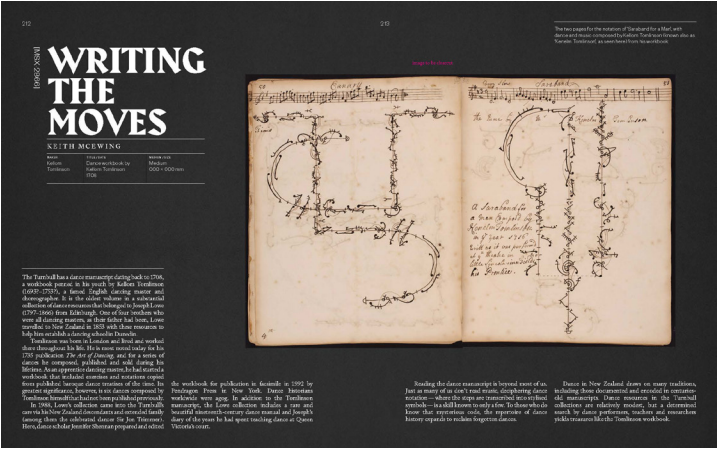 212
213
The two pages for the notation of 'Saraband for a Man', with
dance and music composed by Kellom Tomlinson (known also as
'Kenelm Tomlinson', as seen here) from his workbook.
[MSX-2966]
WRITING
THE
MOVES
KEITH MCEWING
Kellom
Tomlinson
Dance workbook by
Kellom Tomlinson
1708
Medium
000 × 000mm
The Turnbull has a dance manuscript dating back to 1708,
a workbook penned in his youth by Kellom Tomlinson
(1693?–1753?), a famed English dancing master and
choreographer. It is the oldest volume in a substantial
collection of dance resources that belonged to Joseph Lowe
(1797–1866) from Edinburgh. One of four brothers who
were all dancing masters, as their father had been, Lowe
travelled to New Zealand in 1853 with these resources to
help him establish a dancing school in Dunedin.
Tomlinson was born in London and lived and worked
there throughout his life. He is most noted today for his
1735 publication The Art of Dancing, and for a series of
dances he composed, published and sold during his
lifetime. As an apprentice dancing master, he had started a
workbook that included exercises and notations copied
from published baroque dance treatises of the time. Its
greatest significance, however, is six dances composed by
Tomlinson himself that had not been published previously.
In 1988, Lowe's collection came into the Turnbull's
care via his New Zealand descendants and extended family
(among them the celebrated dancer Sir Jon Trimmer).
Here, dance scholar Jennifer Shennan prepared and edited
the workbook for publication in facsimile in 1992 by
Pendragon Press in New York. Dance historians
worldwide were agog. In addition to the Tomlinson
manuscript, the Lowe collection includes a rare and
beautiful nineteenth-century dance manual and Joseph's
diary of the years he had spent teaching dance at Queen
Victoria's court.
Reading the dance manuscript is beyond most of us.
Just as many of us don't read music, deciphering dance
notation — where the steps are transcribed into stylised
symbols — is a skill known to only a few. To those who do
know that mysterious code, the repertoire of dance
history expands to reclaim forgotten dances.
Dance in New Zealand draws on many traditions,
including those documented and encoded in centuries-
old manuscripts. Dance resources in the Turnbull
collections are relatively modest, but a determined
search by dance performers, teachers and researchers
yields treasures like the Tomlinson workbook.
Saraband
A Saraband for
a Man Compos'd by
Kenelm Tomlinson